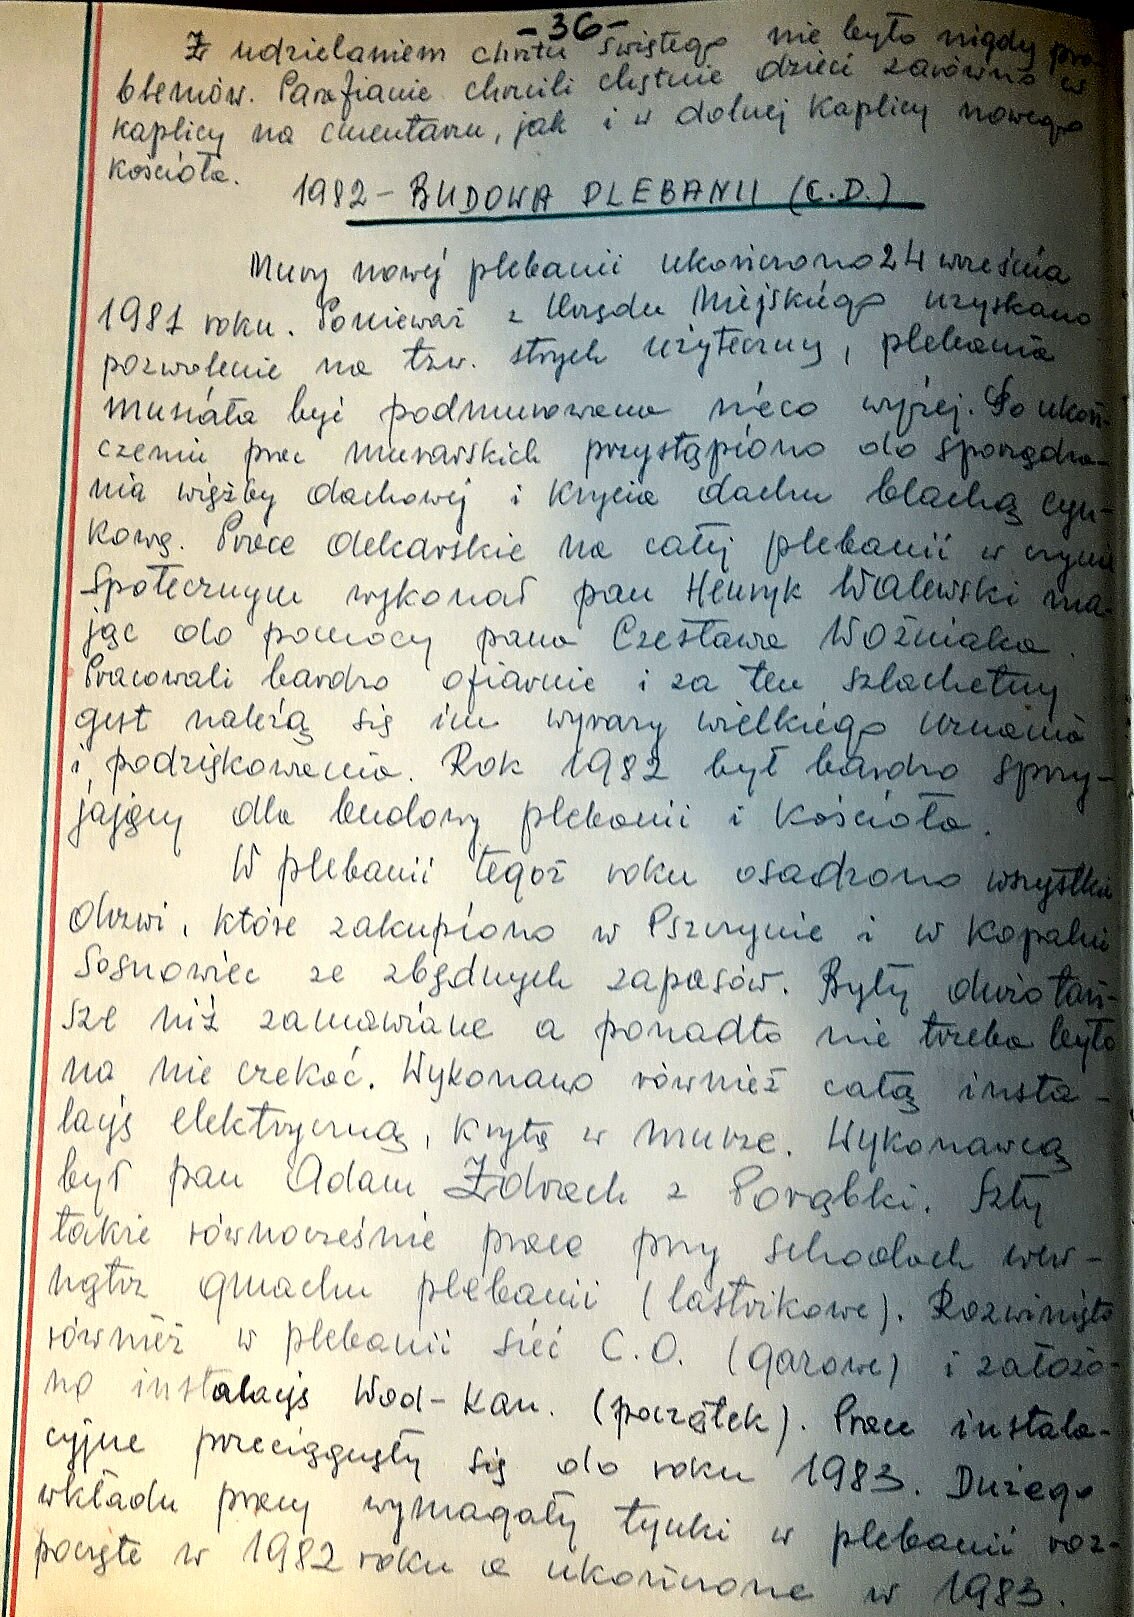 -36-
Z udzielaniem chrztu świętego nie było nigdy pro-
blemów. Parafianie chrzcili chętnie dzieci zarówno w
kaplicy na cmentarzu, jak i w dolnej kaplicy nowego
kościoła.
1982 - BUDOWA PLEBANII (C.D.)
Mury nowej plebanii ukończono 24 września
1981 roku. Ponieważ z Urzędu Miejskiego uzyskano
pozwolenie na tzw. strych użyteczny, plebania
musiała być podmurowana nieco wyżej. Po ukoń-
czeniu prac murarskich przystąpiono do sporządza-
nia więźby dachowej i krycia dachu blachą cyn-
kową. Prace dekarskie na całej plebanii w czynie
społecznym wykonał pan Henryk Walewski ma-
jąc do pomocy pana Czesława Woźniaka.
Pracowali bardzo ofiarnie i za ten szlachetny
gest należą się im wyrazy wielkiego uznania
i podziękowania. Rok 1982 był bardzo sprzy-
jający dla budowy plebanii i kościoła.
W plebanii tegoż roku osadzono wszystkie
drzwi, które zakupiono w Pszczynie i w kopalni
Sosnowiec ze zbędnych zapasów. Były dużo tań-
sze niż zamawiane a ponadto nie trzeba było
na nie czekać. Wykonano również całą insta-
lację elektryczną, krytą w murze. Wykonawcą
był pan Adam Zdrzech z Porąbki. Szły
także równocześnie prace przy schodach wew-
nątrz gmachu plebanii (lastrikowe). Rozwinięto
również w plebanii sieć C.O. (gazowe) i założo-
no instalację Wod-Kan. (początek). Prace instala-
cyjne przeciągnęły się do roku 1983. Dużego
wkładu pracy wymagały tynki w plebanii roz-
poczęte w 1982 roku a ukończone w 1983.